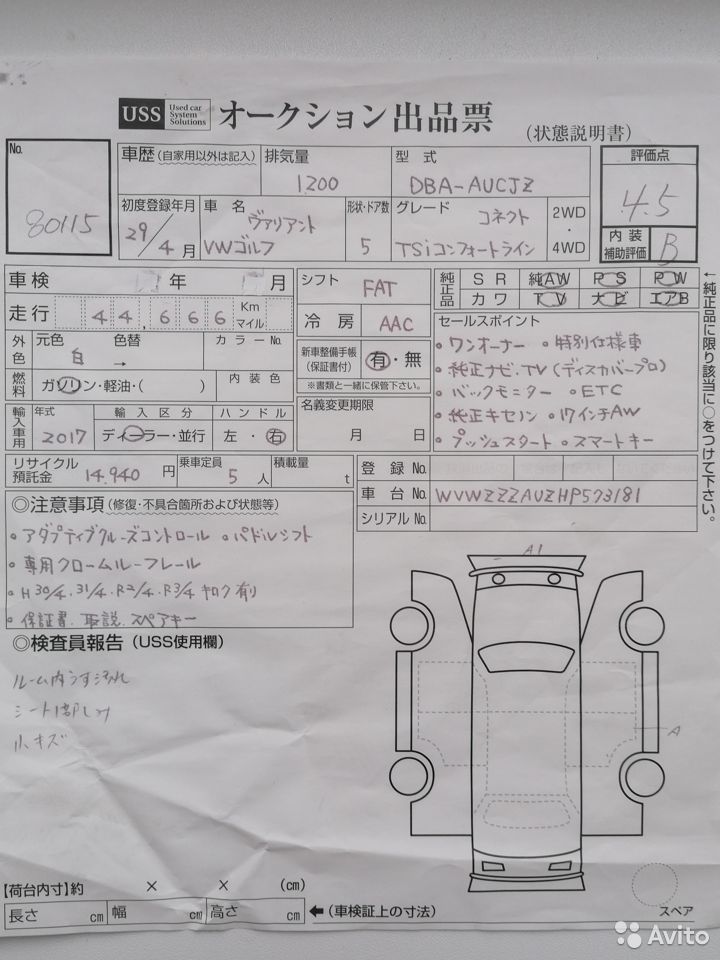 USS Used car System Solutions オークション出品票 (状態説明書)
No. 80115
車歴(自家用以外は記入) 排気量 1200 型式 DBA-AUCJZ 評価点 4.5
初度登録年月 29/4月 車名 ヴァリアント VWゴルフ 形状・ドア数 5 グレード コネクト TSiコンフォートライン 2WD・4WD 内装補助評価 B
車検 年 月 シフト FAT 純正品 SR 純AW PS PW
走行 44,666 Km マイル 冷房 AAC カワ TV ナビ エアB
外色 元色 白 色替 → カラーNo. 新車整備手帳(保証書付) 有・無 ※書類と一緒に保管下さい。
セールスポイント
・ワンオーナー ・特別仕様車
・純正ナビ・TV(ディスカバープロ)
・バックモニター ・ETC
・純正キセノン ・17インチAW
・プッシュスタート ・スマートキー
燃料 ガソリン・軽油・( ) 内装色
名義変更期限 月 日
輸入車用 年式 2017 輸入区分 ディーラー・並行 ハンドル 左・右
リサイクル預託金 14.940円 乗車定員 5人 積載量 t
登録No.
車台No. WVWZZZAUZHP573181
シリアルNo.
←純正品に限り該当に○をつけて下さい。
◎注意事項(修復・不具合箇所および状態等)
・アダプティブクルーズコントロール ・パドルシフト
・専用クロームルーフレール
・H30/4.31/4.R2/4.R3/4 キロク有り
・保証書.取説.スペアキー
◎検査員報告(USS使用欄)
ルーム内うす汚れ
シート1部しみ
小キズ
A1
A
【荷台内寸】約 × × (cm)
長さ cm 幅 cm 高さ cm ←(車検証上の寸法)
スペア
Avito